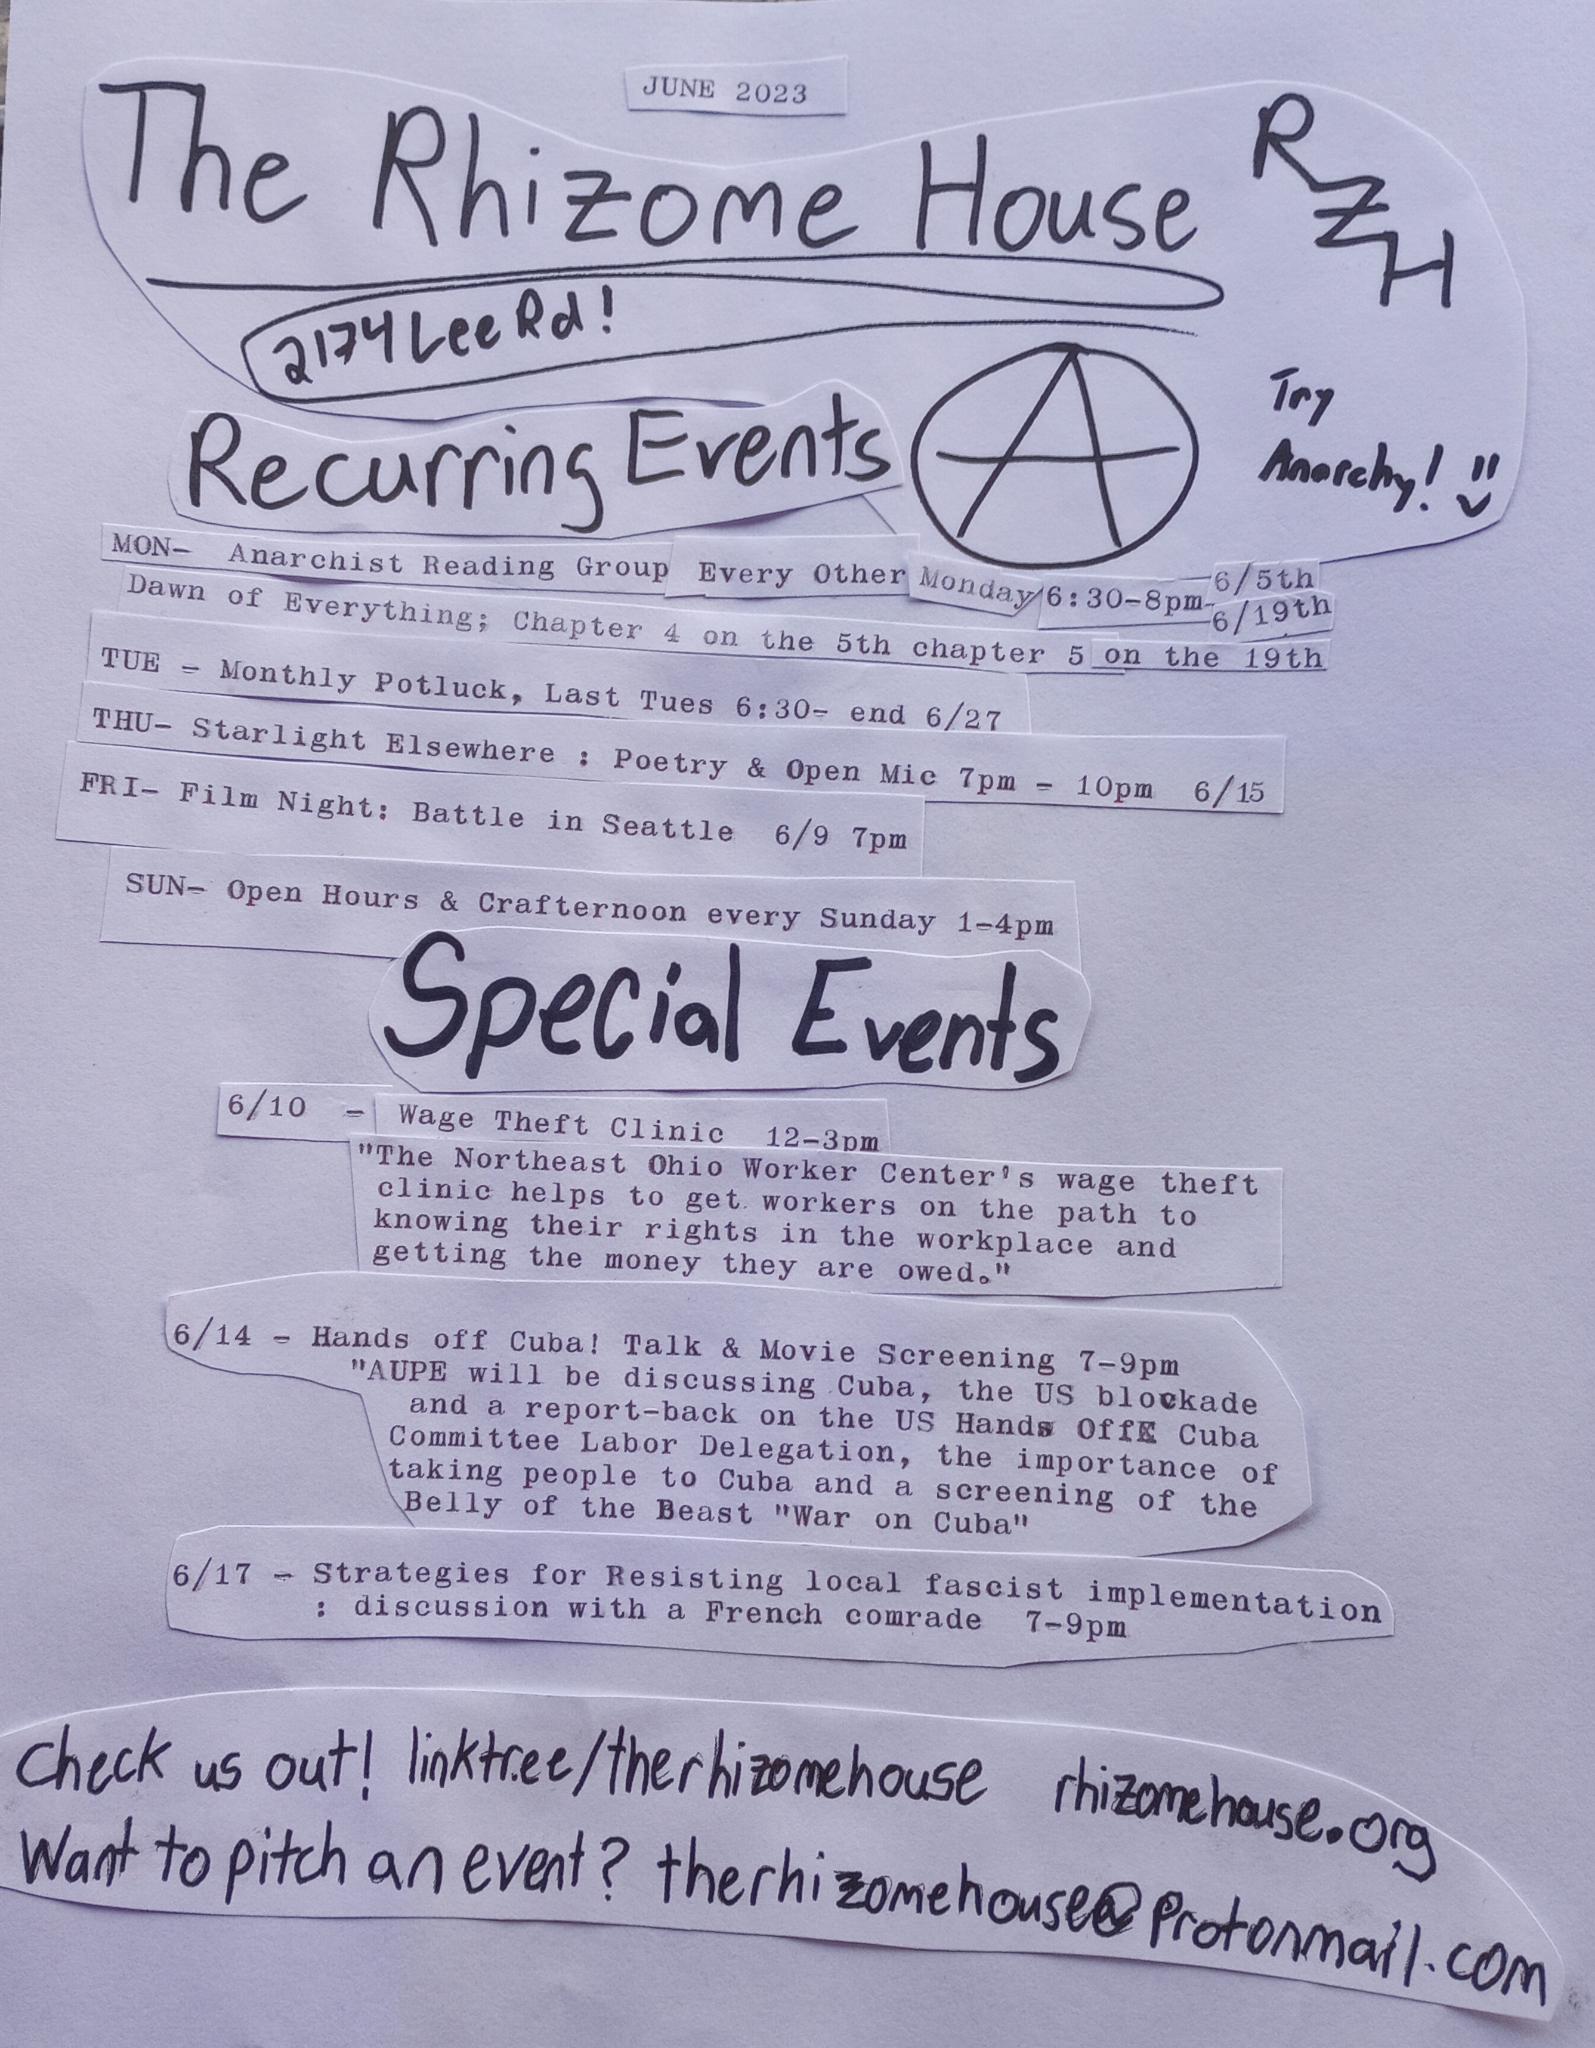 JUNE 2023
The Rhizome House
RZH
2174 Lee Rd!
Try
Anarchy!
Recurring Events
MON- Anarchist Reading Group Every Other Monday 6:30-8pm- 6/5th
6/19th
Dawn of Everything; Chapter 4 on the 5th chapter 5 on the 19th
TUE - Monthly Potluck, Last Tues 6:30- end 6/27
THU- Starlight Elsewhere : Poetry & Open Mic 7pm - 10pm 6/15
FRI- Film Night: Battle in Seattle 6/9 7pm
SUN- Open Hours & Crafternoon every Sunday 1-4pm
Special Events
6/10 - Wage Theft Clinic 12-3pm
"The Northeast Ohio Worker Center's wage theft
clinic helps to get workers on the path to
knowing their rights in the workplace and
getting the money they are owed."
6/14 - Hands off Cuba! Talk & Movie Screening 7-9pm
"AUPE will be discussing Cuba, the US blockade
and a report-back on the US Hands Off Cuba
Committee Labor Delegation, the importance of
taking people to Cuba and a screening of the
Belly of the Beast "War on Cuba"
6/17 - Strategies for Resisting local fascist implementation
: discussion with a French comrade 7-9pm
Check us out! linktr.ee/therhizomehouse rhizomehouse.org
Want to pitch an event? therhizomehouse@protonmail.com